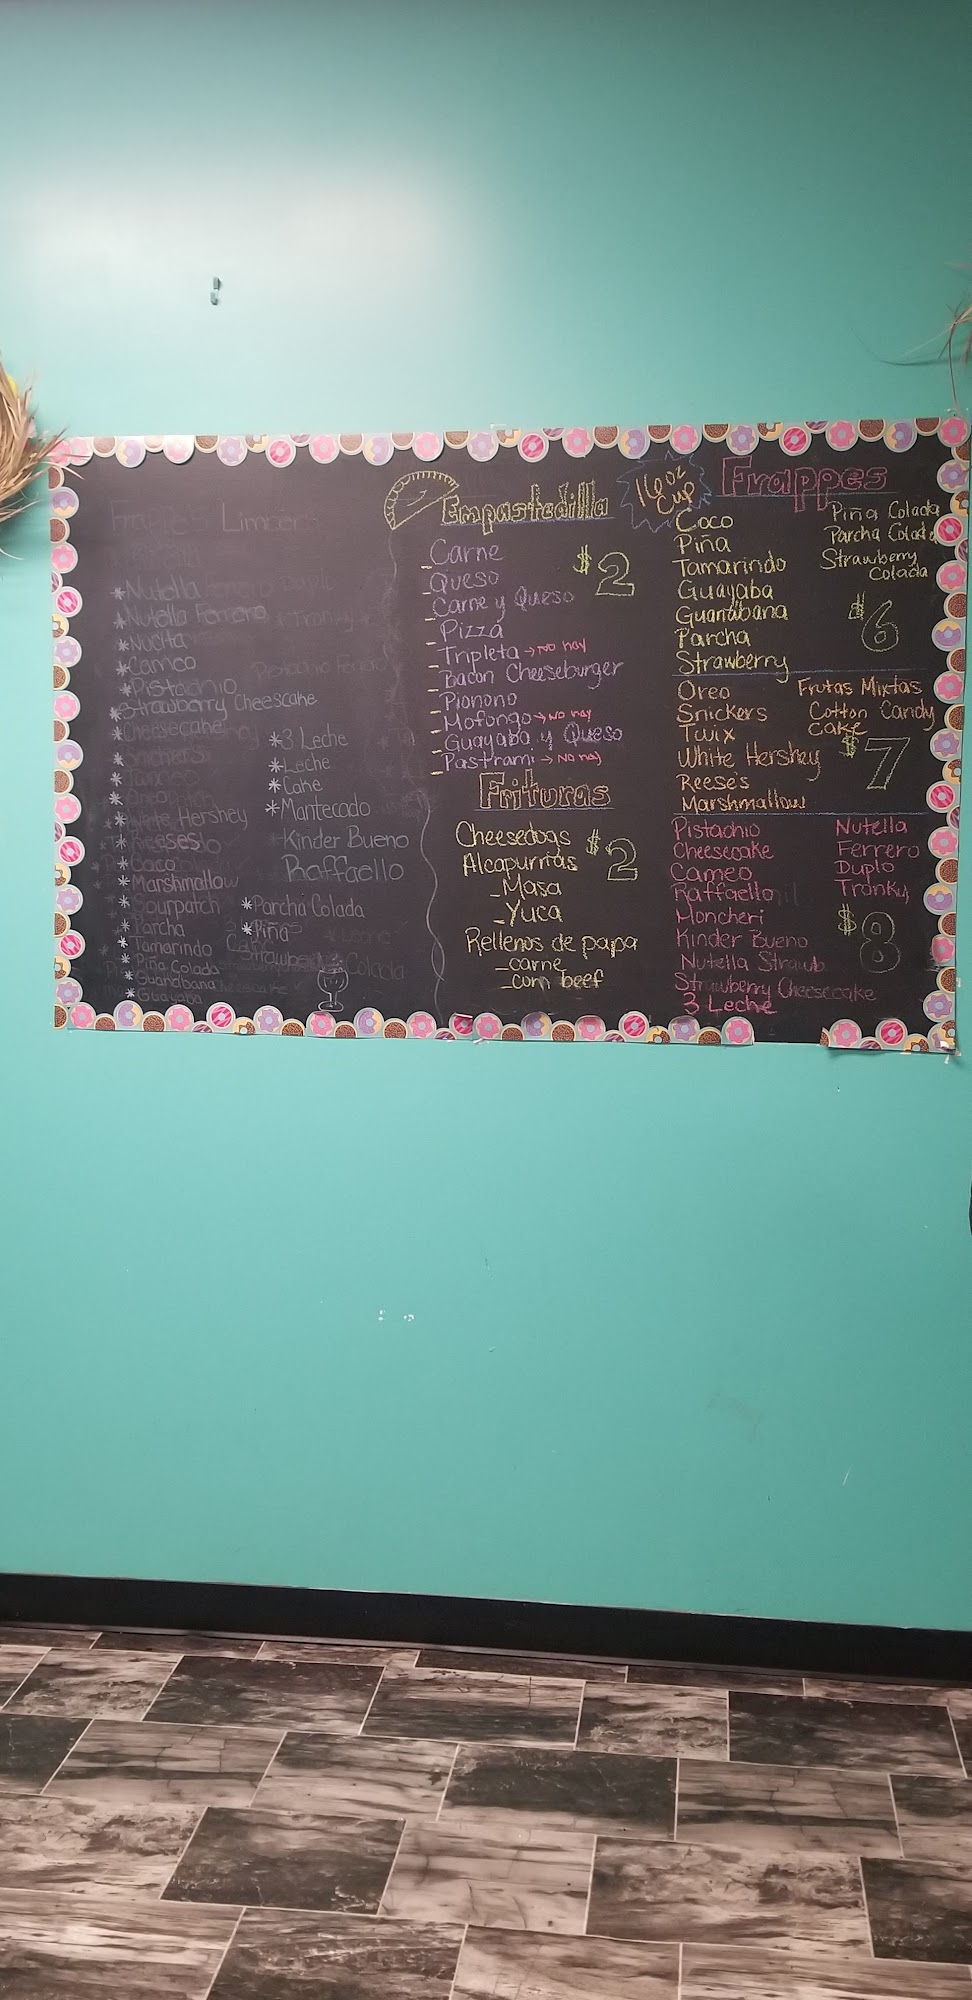 Limber
*Nutella
*Nutella Ferrero
*Nucita
*Cameo
*Pistachio
*Strawberry Cheesecake
*Cheesecake
*White Hershey
*Reeses
*Coco
*Marshmallow
*Sourpatch
*Parcha
*Tamarindo
*Piña Colada
*Guanabana
*Guayaba
*3 Leche
*Leche
*Cake
*Mantecado
Kinder Bueno
Raffaello
*Parcha Colada
*Piña
Empastedilla
$2
_Carne
_Queso
_Carne y Queso
_Pizza
_Tripleta → No hay
_Bacon Cheeseburger
_Pionono
_Mofongo → No hay
_Guayaba y Queso
_Pastrami → No hay
Frituras
Cheesedogs $2
Alcapurrias
_Masa
_Yuca
Rellenos de papa
_carne
_corn beef
16 oz
Cup
Frappes
Coco
Piña
Tamarindo
Guayaba
Guanabana
Parcha
Strawberry
Piña Colada
Parcha Colada
Strawberry
Colada
$6
Oreo
Snickers
Twix
White Hershey
Reese's
Marshmallow
Frutas Mixtas
Cotton Candy
Cake
$7
Pistachio
Cheesecake
Cameo
Raffaello
Moncheri
Kinder Bueno
Nutella Strawb
Strawberry Cheesecake
3 Leche
Nutella
Ferrero
Duplo
Tronky
$8